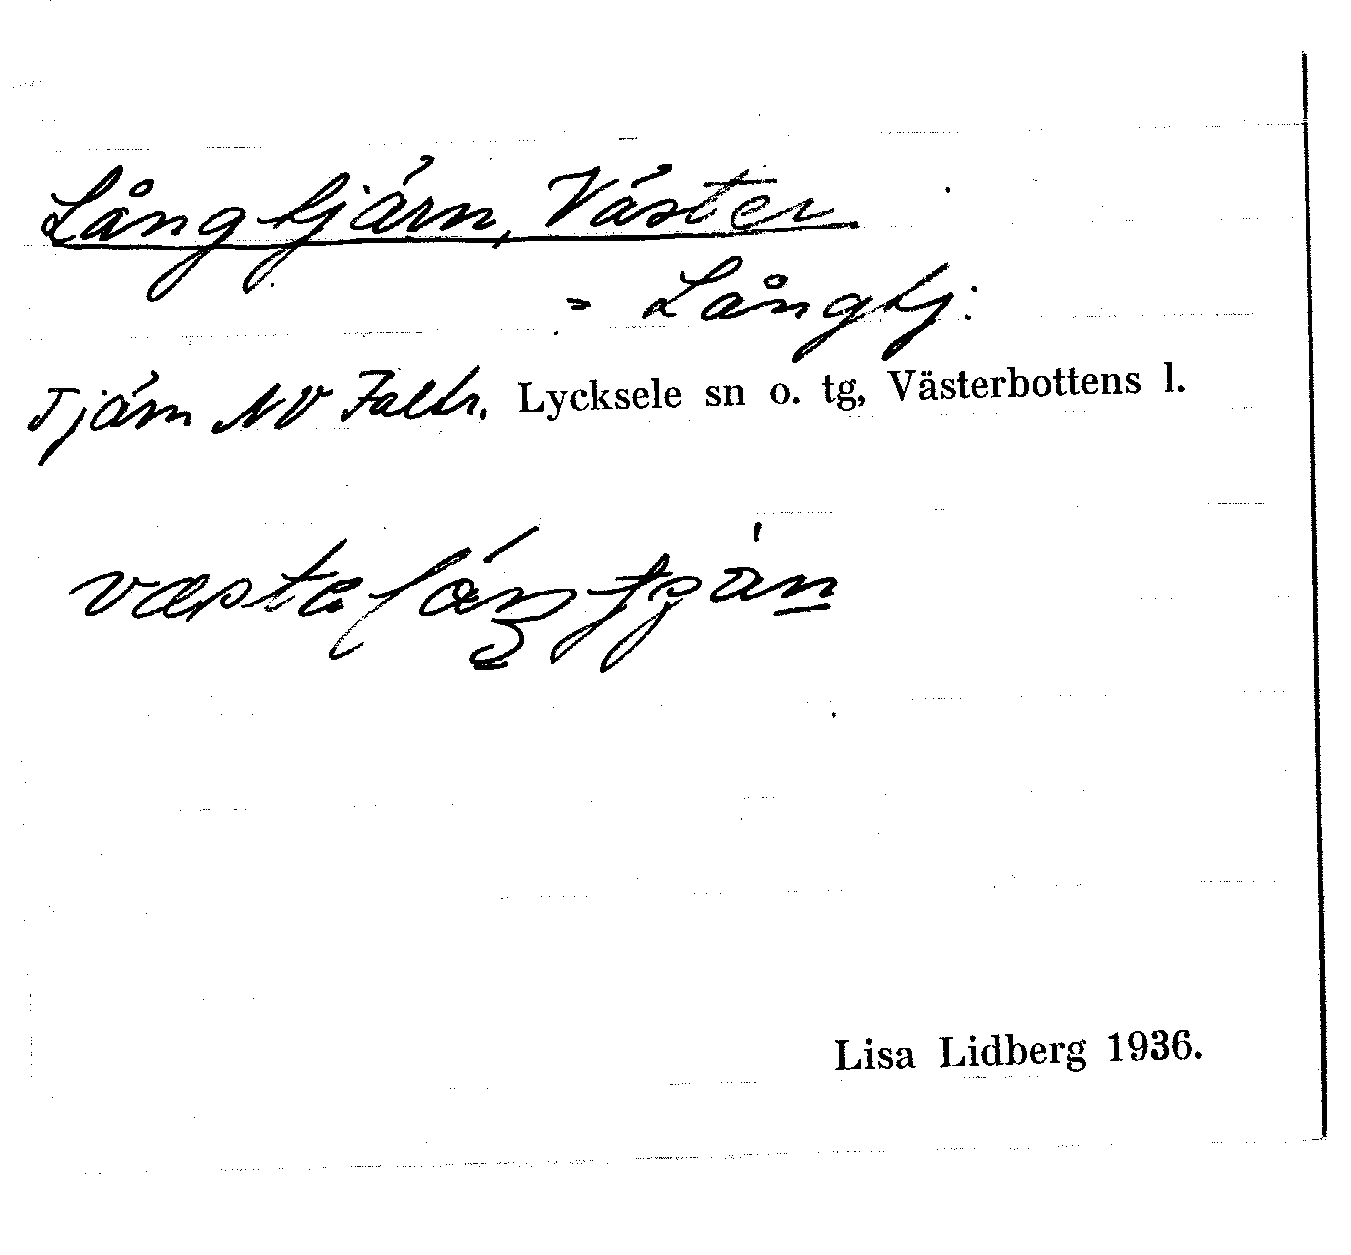 Långtjärn, Väster
= Långtj:
Tjärn NV Faltr. Lycksele sn o. tg, Västerbottens l.
Lisa Lidberg 1936.